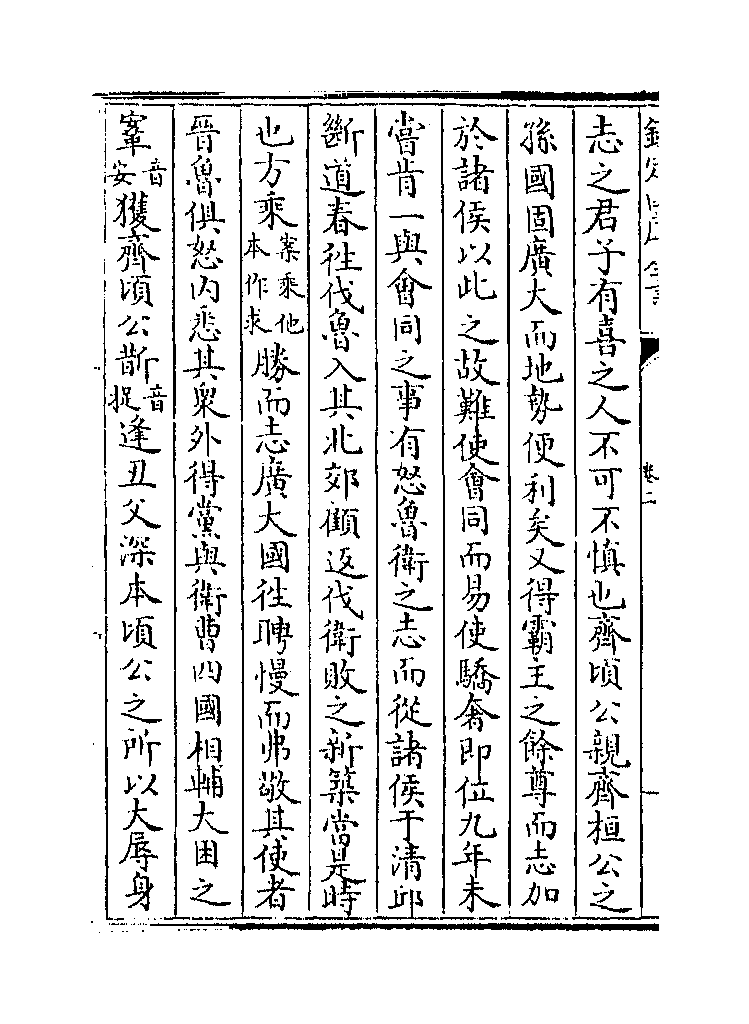 志之君子有喜之人不可不慎也齊頃公親齊桓公之
孫國固廣大而地勢便利矣又得霸主之餘尊而志加
於諸侯以此之故難使會同而易使驕奢即位九年未
嘗肯一與會同之事有怒魯衛之志而從諸侯于清邱
斷道春徃伐魯入其北郊顧返伐衛敗之新築當是時
也方乘案乘他本作求勝而志廣大國徃聘慢而弗敬其使者
晉魯俱怒内悉其衆外得黨與衛曹四國相輔大困之
鞌音安獲齊頃公斮音捉逄丑父深本頃公之所以大辱身
卷二